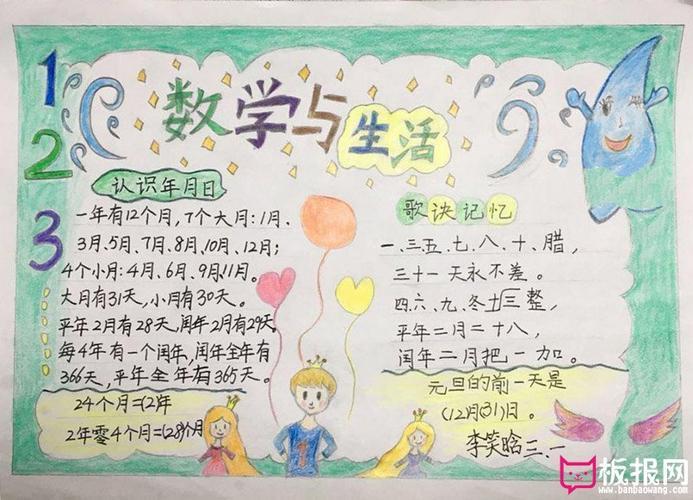 1
2
3
数学与生活
认识年月日
一年有12个月,7个大月:1月、
3月.5月、7月、8月、10月、12月;
4个小月:4月、6月、9月11月。
大月有31天,小月有30天。
平年2月有28天,闰年2月有29天。
每4年有一个闰年,闰年全年有
366天,平年全年有365天。
24个月=(2)年
2年零4个月=(28)个月
歌诀记忆
一、三五、七、八、十、腊,
三十一天永不差。
四、六、九、冬三十整,
平年二月二十八,
闰年二月把一加。
元旦的前一天是
(12月(31)日。
李笑晗三、一
1
板报网
www.banbaowang.com